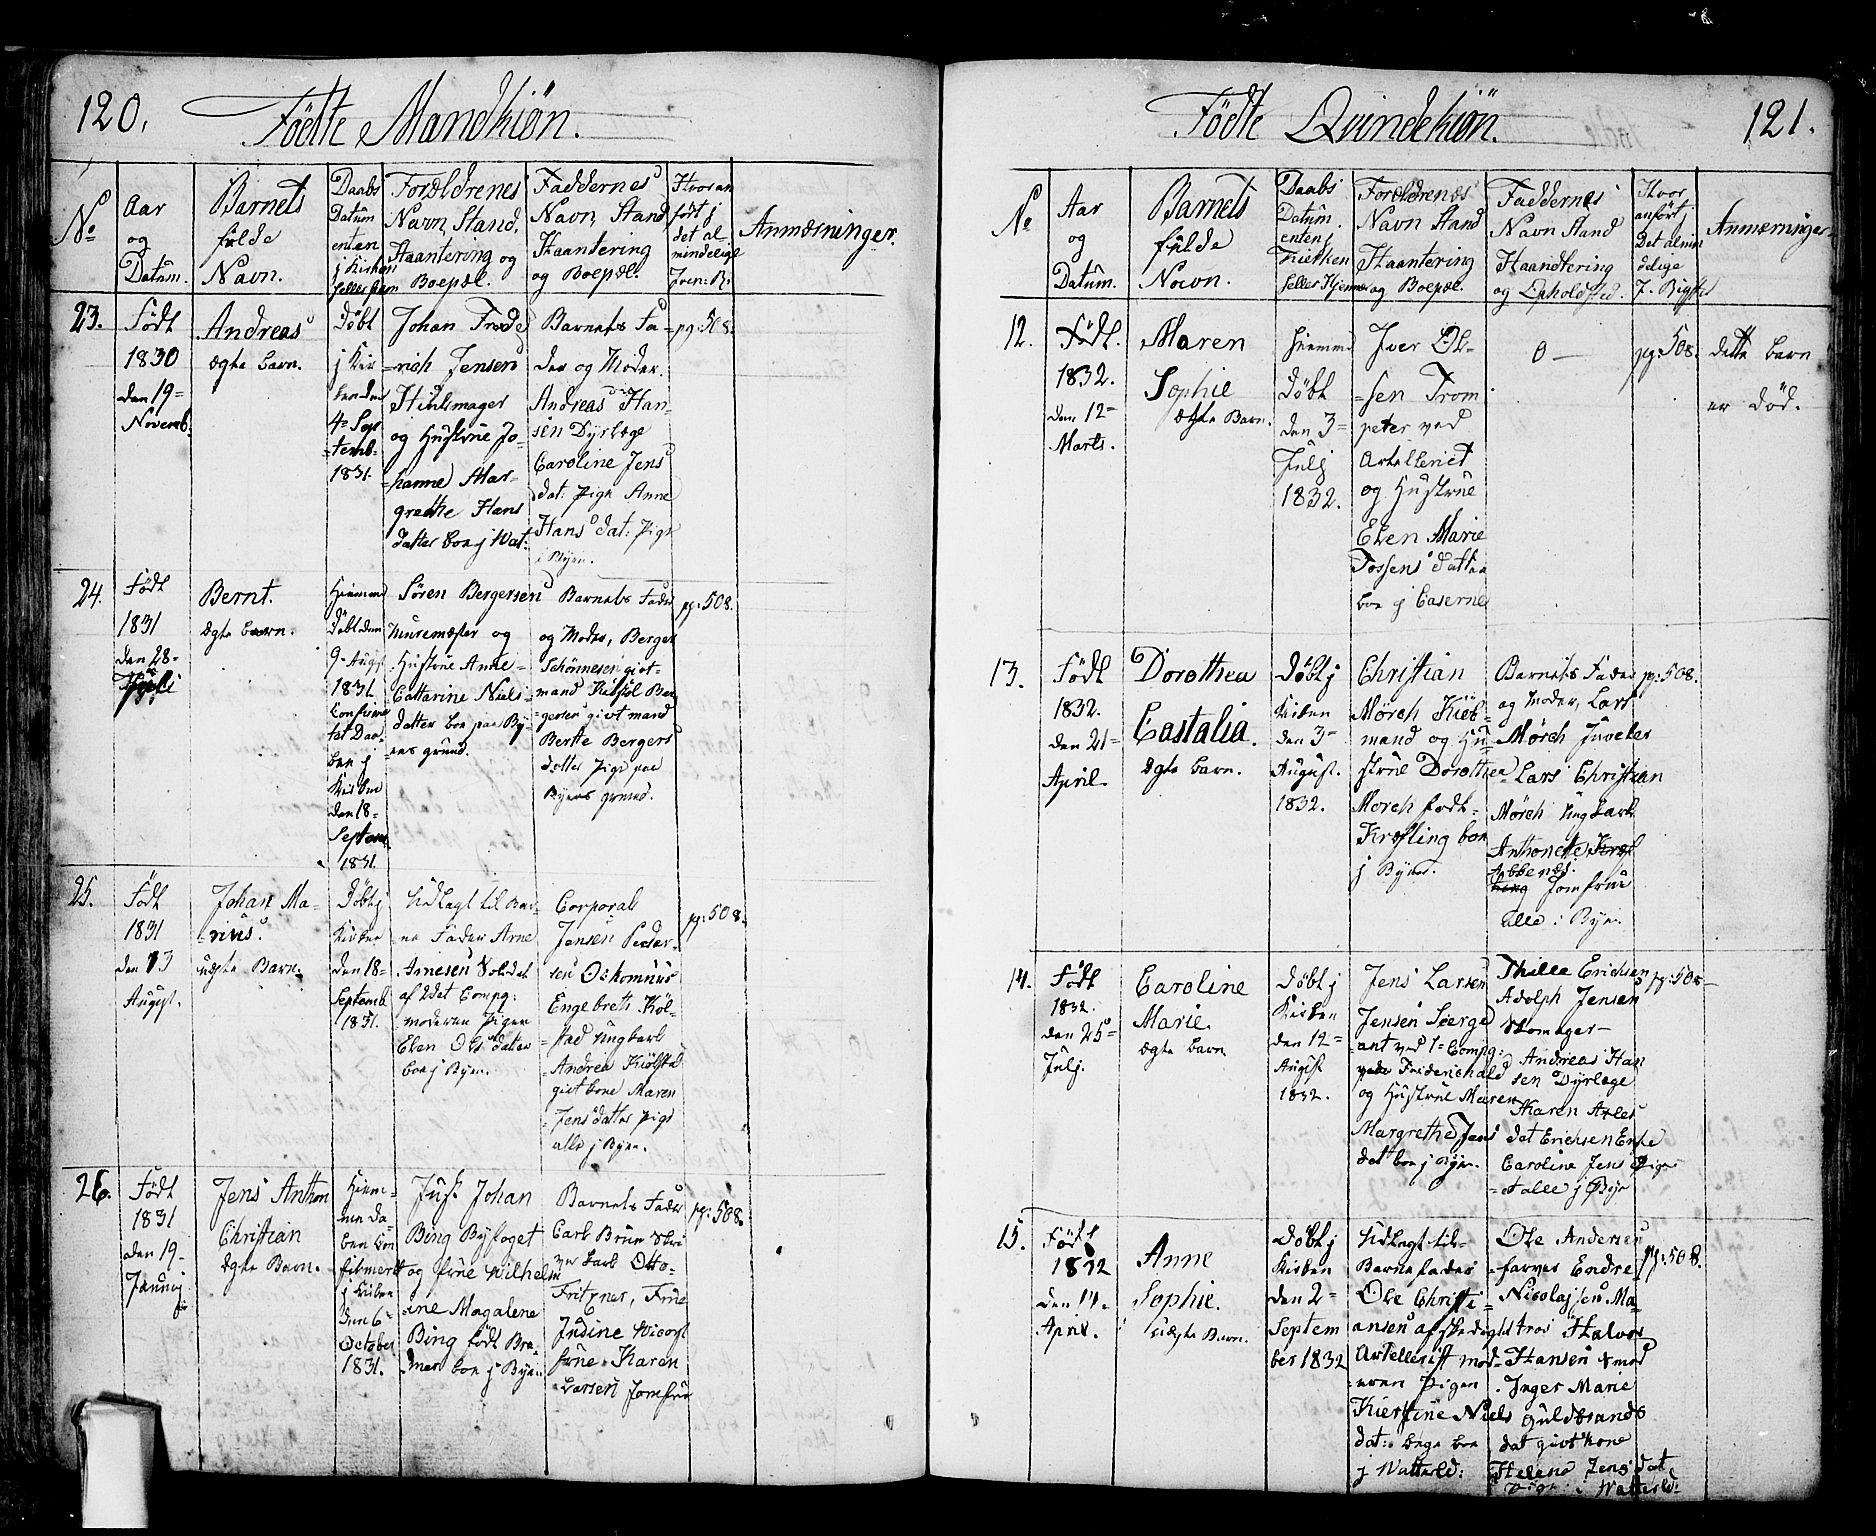 120.
Födte Mandkiön.
No
Aar
og
Datum.
Barnets
fulde
Navn.
Daabs
Datum
enten
j Kirken
Forældrenes
Navn, Stand,
Haantering og
Boepæl.
Faddernes
Navn, Stand
Haantering
og Boepæl.
Hvor an
fört j
det al
mindelige
Anmærninger.
23.
Födt
1830
den 19=
Novemb.
Andreas
ægte barn.
Döbt
j Kir
ken den
4= Sep
=temb=
1831.
Johan Frede
=rich Jensen
og Hustrue Jo=
=hanne Mar=
grethe Hans
datter boe j Wat:
Barnets Fa=
der og Moder.
Andreas Han=
sen Dyrlæge
Caroline Jens
dat: Pige Anne
Hans dat: Pige
i Byen.
pg: 508.
24.
Födt
1831
den 28=
Bernt.
ægte barn.
Hiemme
Döbt den
9= Augst
1831.
Confirme
ret Daa=
ben j
Kirken
den 18=
Septemb
1831.
Sören Bergersen
Muremæster og
Hustrue Anne
Cattarine Niels
datter boe paa By=
ens grund.
Barnets Fader
og Moder, Berger
Schönnesen givt=
mand
gersen givt mand
Berthe Bergers
datter Pige paa
Byens grund.
pg: 508.
25.
Födt
1831
den 13
August.
Johan Ma=
=rius.
uægte Barn.
Döbt j
Kirken
den 18=
Septemb
1831.
Udlagt til Bar=
ne Fader Arne
Arnesen Soldat
af 2det Compg:
moderen Pigen
Elen Ols datter
boe j Byen.
Corporal
Jensen Peder=
sen Oskomnus
Engebreth Köl=
stad Ungkarl
Andrea Kiölsta
givt kone Maren
Jens datter Pige
alle j Byen.
pg: 508.
26.
Födt
1831
den 19=
Jens Anthon
Christian
ægte Barn.
Hiem=
me da=
ben Con
firmert
j Kirken
den 6=
October
1831.
Just Johan
Bing Byfoget
og frue Wilhelm
ine Magalene
Bing födt Bra=
mer boe j Byen
Barnets Fader
Carl Brun Skri
ver Karl Otto=
Fritzner, Frue
Indine
frue Karen
Larsen Jomfrue
pg: 508.
Födte Qvindekiön.
121.
No
Aar
og
Datum.
Barnets
fulde
Navn.
Daabs
Datum.
enten j
Kirken
eller Hjemme
Forældrenes
Navn Stand
Haantering
og Boepæl.
Faddernes
Navn Stand
Haandtering
og Opholdsted.
Hvor
anfört j
Det almin
delige
J. Register
Anmærninger
12.
Födt.
1832.
den 12=
Marts.
Maren
Sophie
ægte Barn.
hiemme
Döbt
den 3=
Julj
1832.
Iver Ol=
=sen Trom
peter ved
Artelleriet
og Hustrue
Elen Marie
Tossens datter
boe j Caserne
0 —
pg: 508.
dette barn
er död.
13.
Födt
1832.
den 21=
April.
Dorothea
Castalia.
ægte barn.
Döbt j
Kirken
den 3=
August.
1832.
Christian
Mörch Kiöb=
mand og Hu=
strue Dorothea
Morch födt=
Kræfting boe
j Byen.
Barnets Fader
og Moder, Lars
Mörch Juveler
Lars Christian
Mörch Ungkarl
Anthonette
Jomfrue
alle i Byen.
pg: 508.
14.
Födt
1832.
den 25=
Julj.
Caroline
Marie.
ægte barn
Döbt j
Kirken
den 12=
August
1832.
Jens Larsen
Jensen Serge
=ant ved 1= Compg:
Friderichald
og Hustrue Maren
Margrethe Jens
dat boe j Byen.
Thille Erichsen
Adolph Jensen
Skomager=
Andreas Han
sen Dyrlæge
Karen Arles
dat Erichsen Enke
Caroline Jens Pige
=at alle j Bye
pg: 508=
15.
Födt
1832
den 14.
April.
Anne
Sophie.
uægte Barn.
Döbt j
Kirken
den 2=
Septem
ber 1832
Udlagt til=
Barnefader
Ole Christi=
ansen af
Artellerist mod=
=eren Pigen
Kierstine Niels
dat: begge boe
j Watterld:
Ole Andersen
farver Endre
Nicolajsen Ma=
tros Halvor
Hansen Smed
Inger Marie
Guldbrands
dat givt kone
Helene Jens dat
Pige i Watterld:
pg: 508.